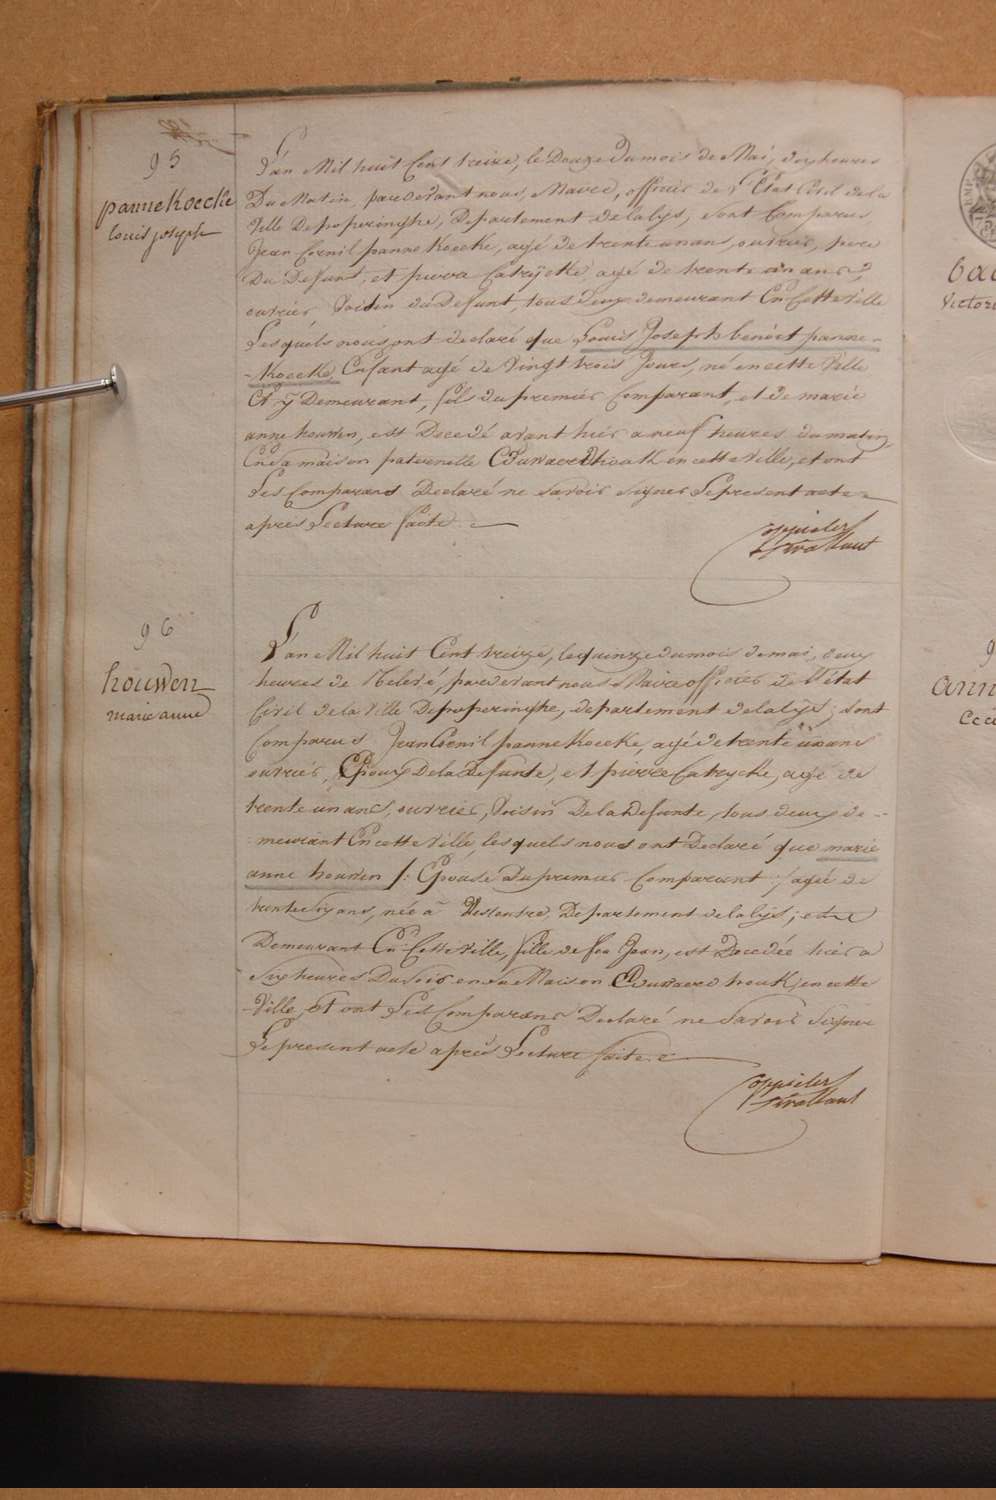 95
pannekoecke
louis joseph
L'an Mil huit Cent treize, le Douze du mois de Mai, dix heures
Du Matin, pardevant nous, Maire, officier de l'Etat Civil de la
Ville De poperinghe, Departement de la lys, sont Comparus
Jean Cornil pannekoecke, agé de trente un ans, ouvrier, pere
Du Defunt, et pierre Catryecke agé de trente un ans,
ouvrier Voisin du Defunt, tous Deux demeurant En Cette ville
Lesquels nous ont declaré que Louis Joseph benoit panne-
-koecke Enfant agé de Vingt trois Jours, né en cette Ville
Et y Demeurant, fils du premier Comparant, et de marie
anne houwen, est Decedé avant hier a neuf heures du matin
En sa maison paternelle en cette Ville, et ont
Les Comparans Declaré ne savoir signer Le present acte
après Lecture faite.
96
houwen
marie anne
L'an Mil huit Cent treize, le quinze du mois de mai, deux
heures de relevé, pardevant nous Maire officier de l'état
Civil de la Ville De poperinghe, departement de la lys; sont
Comparus Jean Cornil pannekoecke, agé de trente un ans
ouvrier, Epoux De la Defunte, et pierre Catrycke, agé de
trente un ans, ouvrier, Voisin De la Defunte, tous deux de-
meurant En cette Ville, lesquels nous ont Declaré que marie
anne houwen /: Epouse Du premier Comparant :/ agée de
trente six ans, née à Westoutre, Departement de la lys; et
Demeurant En Cette Ville, fille de feu Jean, est Decedée hier a
Six heures Du soir en sa Maison en cette
Ville, Et ont Les Comparans Declaré ne Savoir Signer
Le present acte après Lecture faite.
9